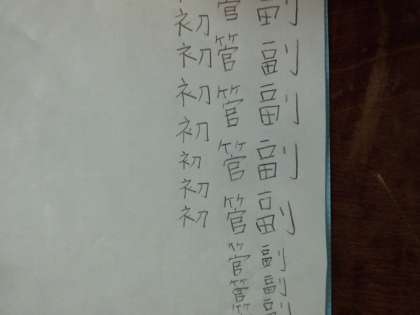 副副副副副副副副
管管管管管管管管
初初初初初初初